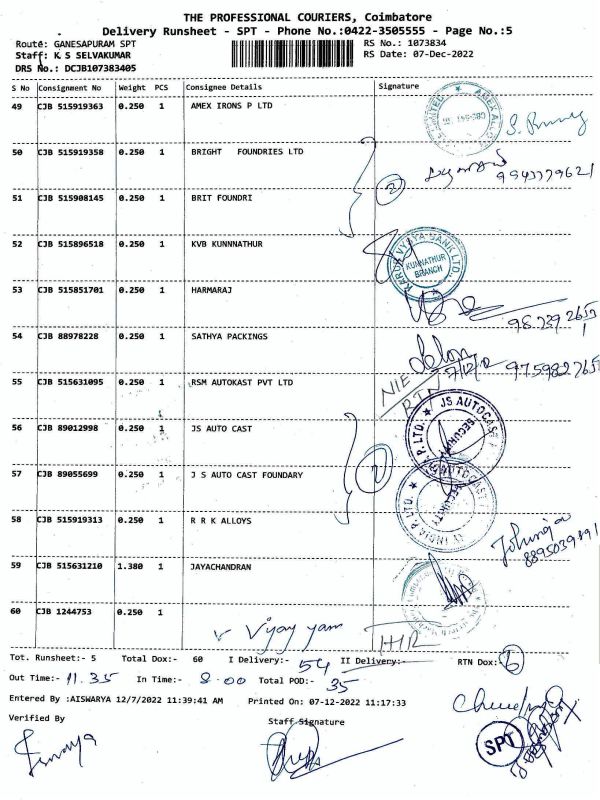 THE PROFESSIONAL COURIERS, Coimbatore
Delivery Runsheet - SPT - Phone No.:0422-3505555 - Page No.:5
Route: GANESAPURAM SPT
RS No.: 1073834
Staff: K S SELVAKUMAR
RS Date: 07-Dec-2022
DRS No.: DCJB107383405
S No Consignment No Weight PCS Consignee Details Signature
49 CJB 515919363 0.250 1 AMEX IRONS P LTD
50 CJB 515919358 0.250 1 BRIGHT FOUNDRIES LTD
2
51 CJB 515908145 0.250 1 BRIT FOUNDRI
52 CJB 515896518 0.250 1 KVB KUNNNATHUR
KARUR VYSYA BANK LTD.
KUNNATHUR
BRANCH
53 CJB 515851701 0.250 1 HARMARAJ
54 CJB 88978228 0.250 1 SATHYA PACKINGS
55 CJB 515631095 0.250 1 RSM AUTOKAST PVT LTD
NIE
RTN
56 CJB 89012998 0.250 1 JS AUTO CAST
JS AUTOCAST
P. LTD.
SECURITY
57 CJB 89055699 0.250 1 J S AUTO CAST FOUNDARY
2
SECURITY
58 CJB 515919313 0.250 1 R R K ALLOYS
59 CJB 515631210 1.380 1 JAYACHANDRAN
60 CJB 1244753 0.250 1
Vijay yam
Tot. Runsheet:- 5 Total Dox:- 60 I Delivery:- 54 II Delivery:- RTN Dox:- 6
Out Time:- 11.35 In Time:- 8.00 Total POD:- 35
Entered By :AISWARYA 12/7/2022 11:39:41 AM Printed On: 07-12-2022 11:17:33
Verified By
Staff Signature
SPT